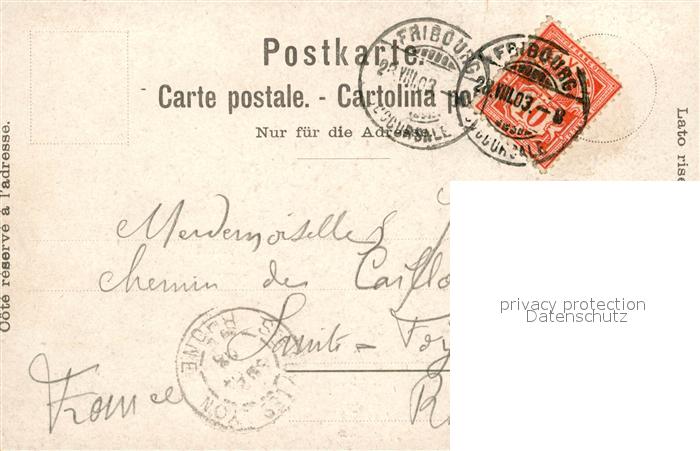 Postkarte.
Carte postale. - Cartolina po
Nur für die Adresse
Côté réservé à l'adresse.
Lato rise
FRIBOURG
28.VIII.03.-8
SUCCURSALE
FRIBOURG
28.VIII.03.-8
SUCCURSALE
10
Mesdemoiselles
chemin des Caillo
Sainte-Foy
France
R
RHONE
LYON
privacy protection
Datenschutz